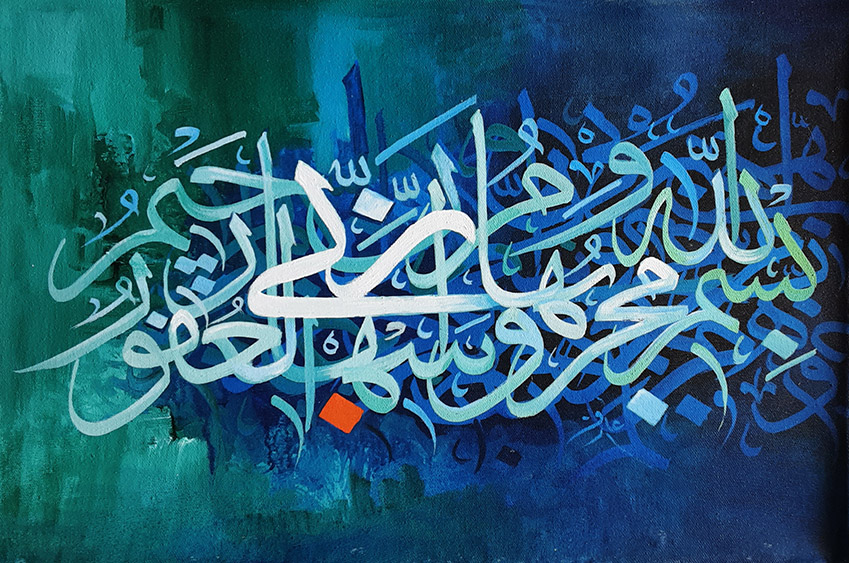 بسم الله مجرىها ومرسىها ان ربي لغفور رحيم